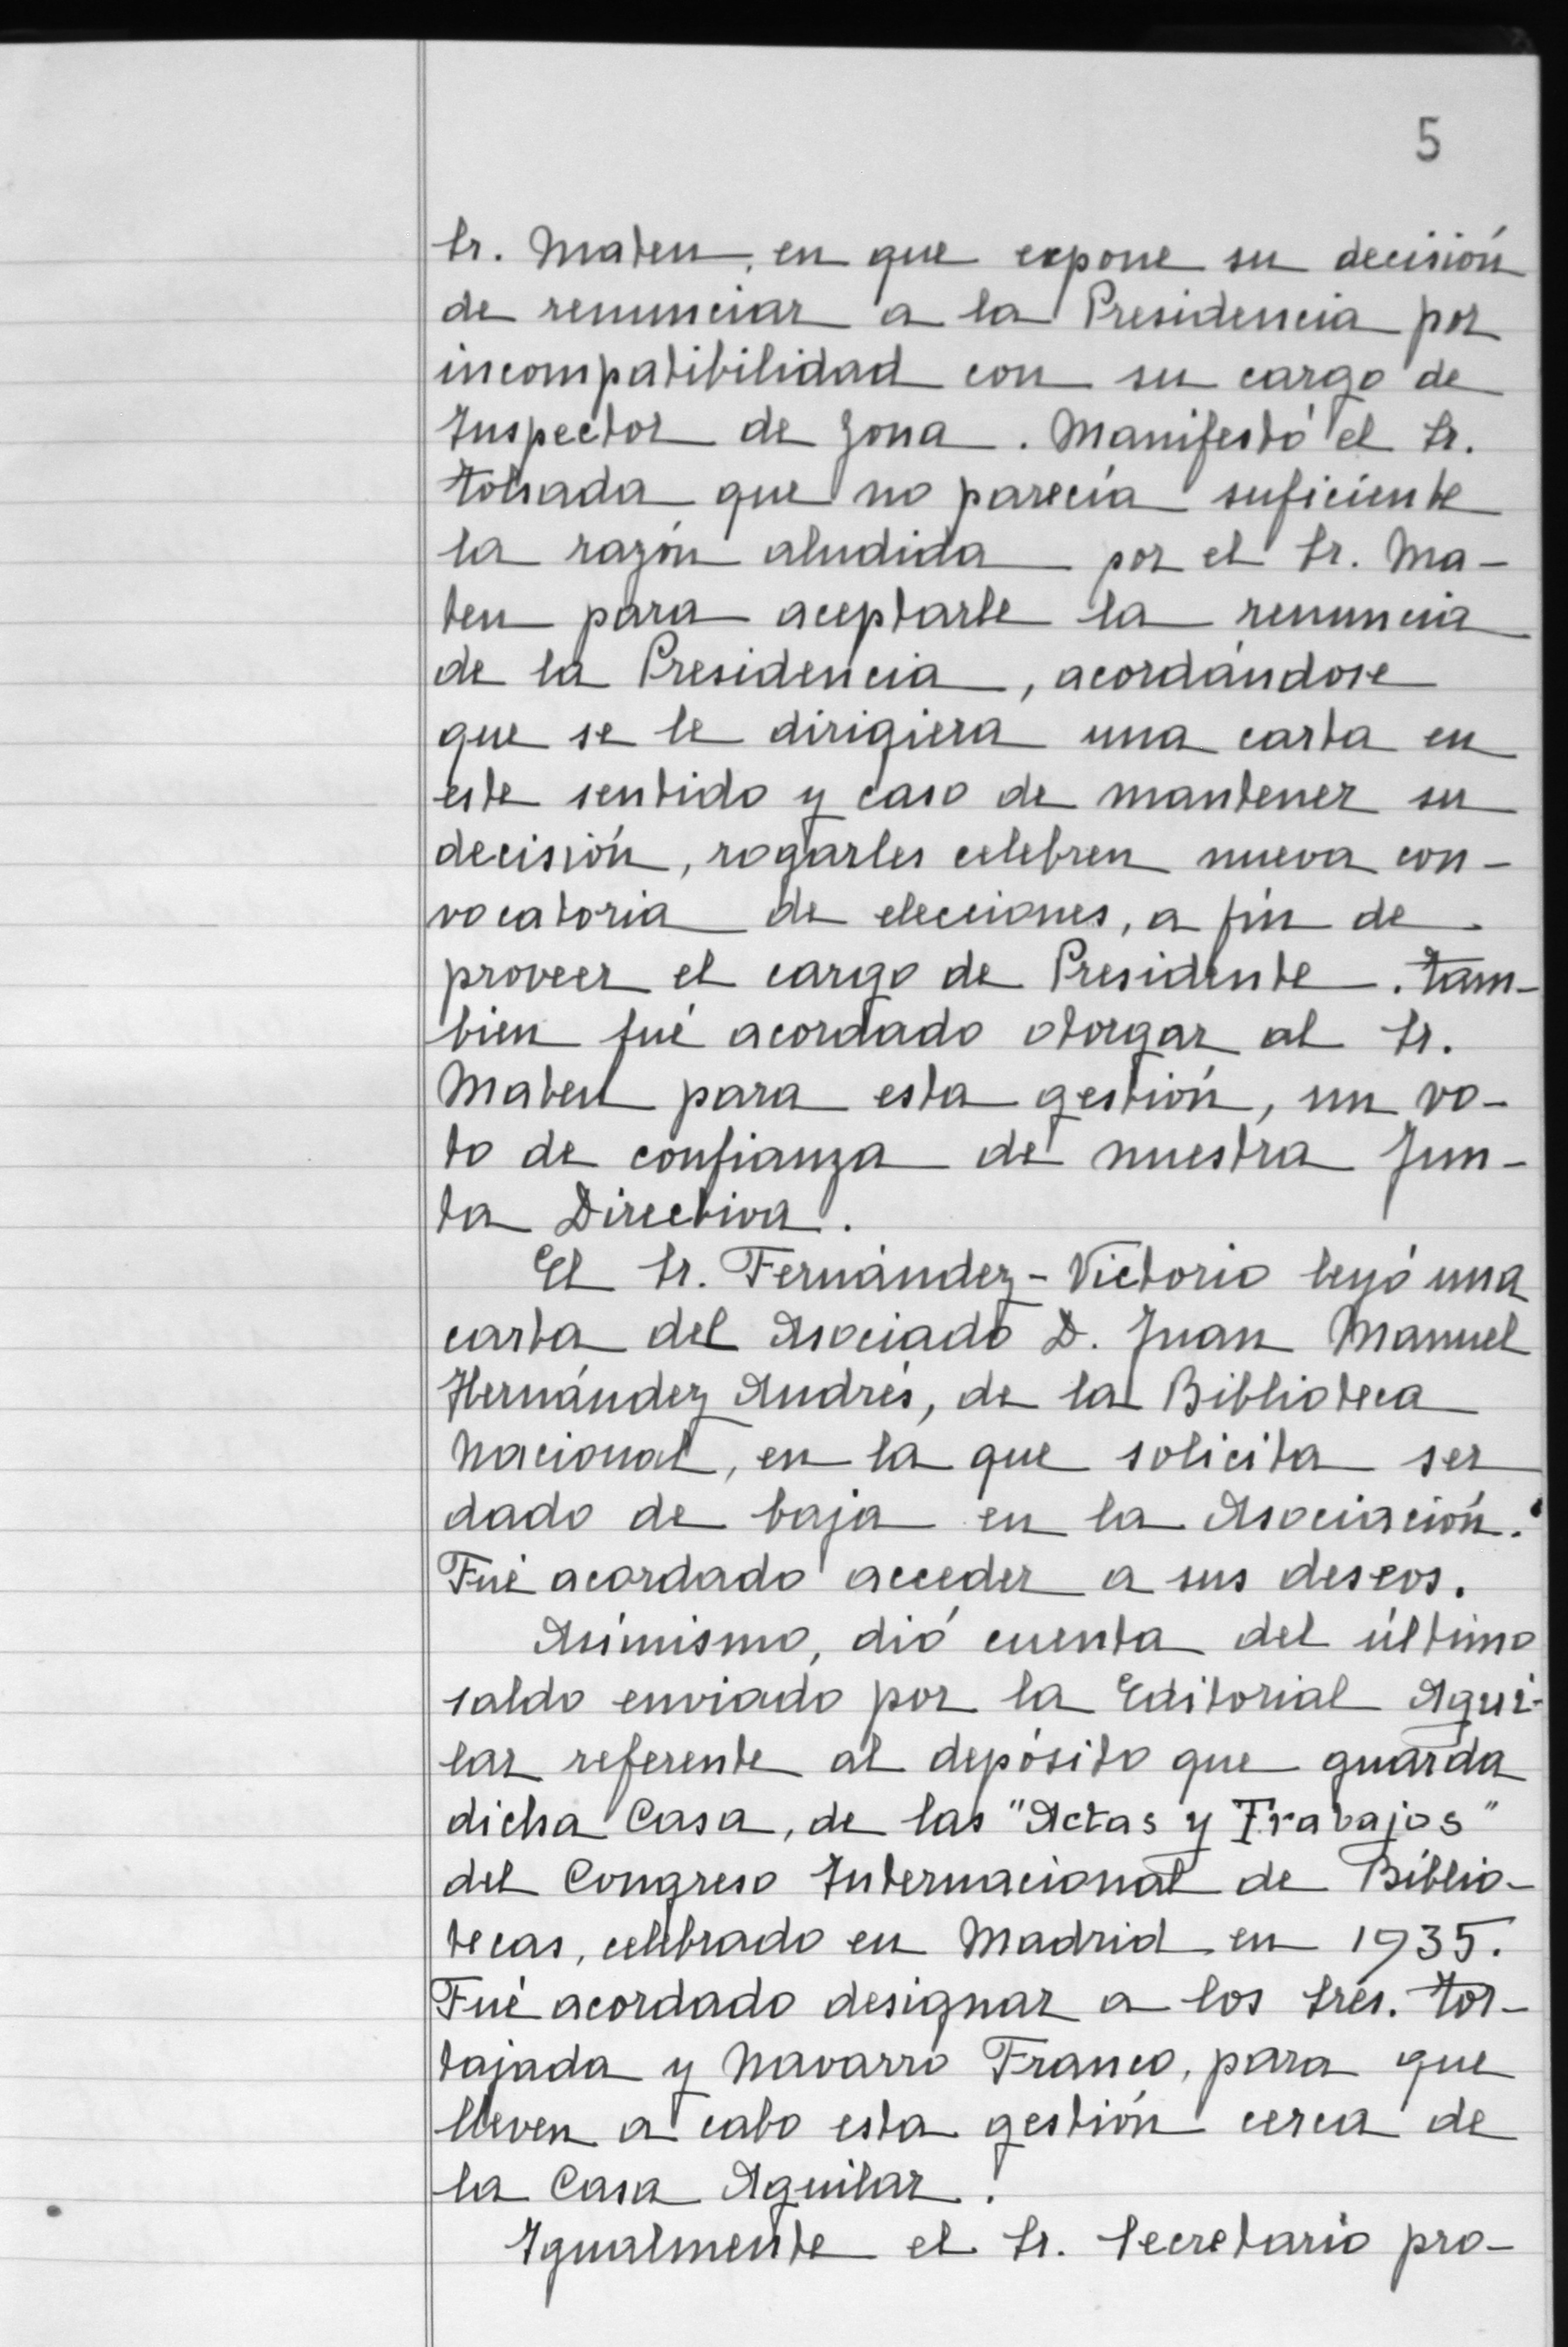 5
Sr. Mateu, en que expone su decisión
de renunciar a la Presidencia por
incompatibilidad con su cargo de
Inspector de Zona. Manifestó el Sr.
Tolsada que no parecía suficiente
la razón aludida por el Sr. Ma-
teu para aceptarle la renuncia
de la Presidencia, acordándose
que se le dirigiera una carta en
este sentido y caso de mantener su
decisión, rogarles celebren nueva con-
vocatoria de elecciones, a fin de
proveer el cargo de Presidente. Tam-
bien fué acordado otorgar al Sr.
Mateu para esta gestión, un vo-
to de confianza de nuestra Jun-
ta Directiva.
El Sr. Fernández-Victorio leyó una
carta del Asociado D. Juan Manuel
Hernández Andrés, de la Biblioteca
Nacional, en la que solicita ser
dado de baja en la Asociación.
Fué acordado acceder a sus deseos.
Asímismo, dió cuenta del último
saldo enviado por la Editorial Agui-
lar referente al depósito que guarda
dicha Casa, de las "Actas y Trabajos"
del Congreso Internacional de Biblio-
tecas, celebrado en Madrid en 1935.
Fué acordado designar a los Sres. Tor-
tajada y Navarro Franco, para que
lleven a cabo esta gestión cerca de
la Casa Aguilar.
Igualmente el Sr. Secretario pro-